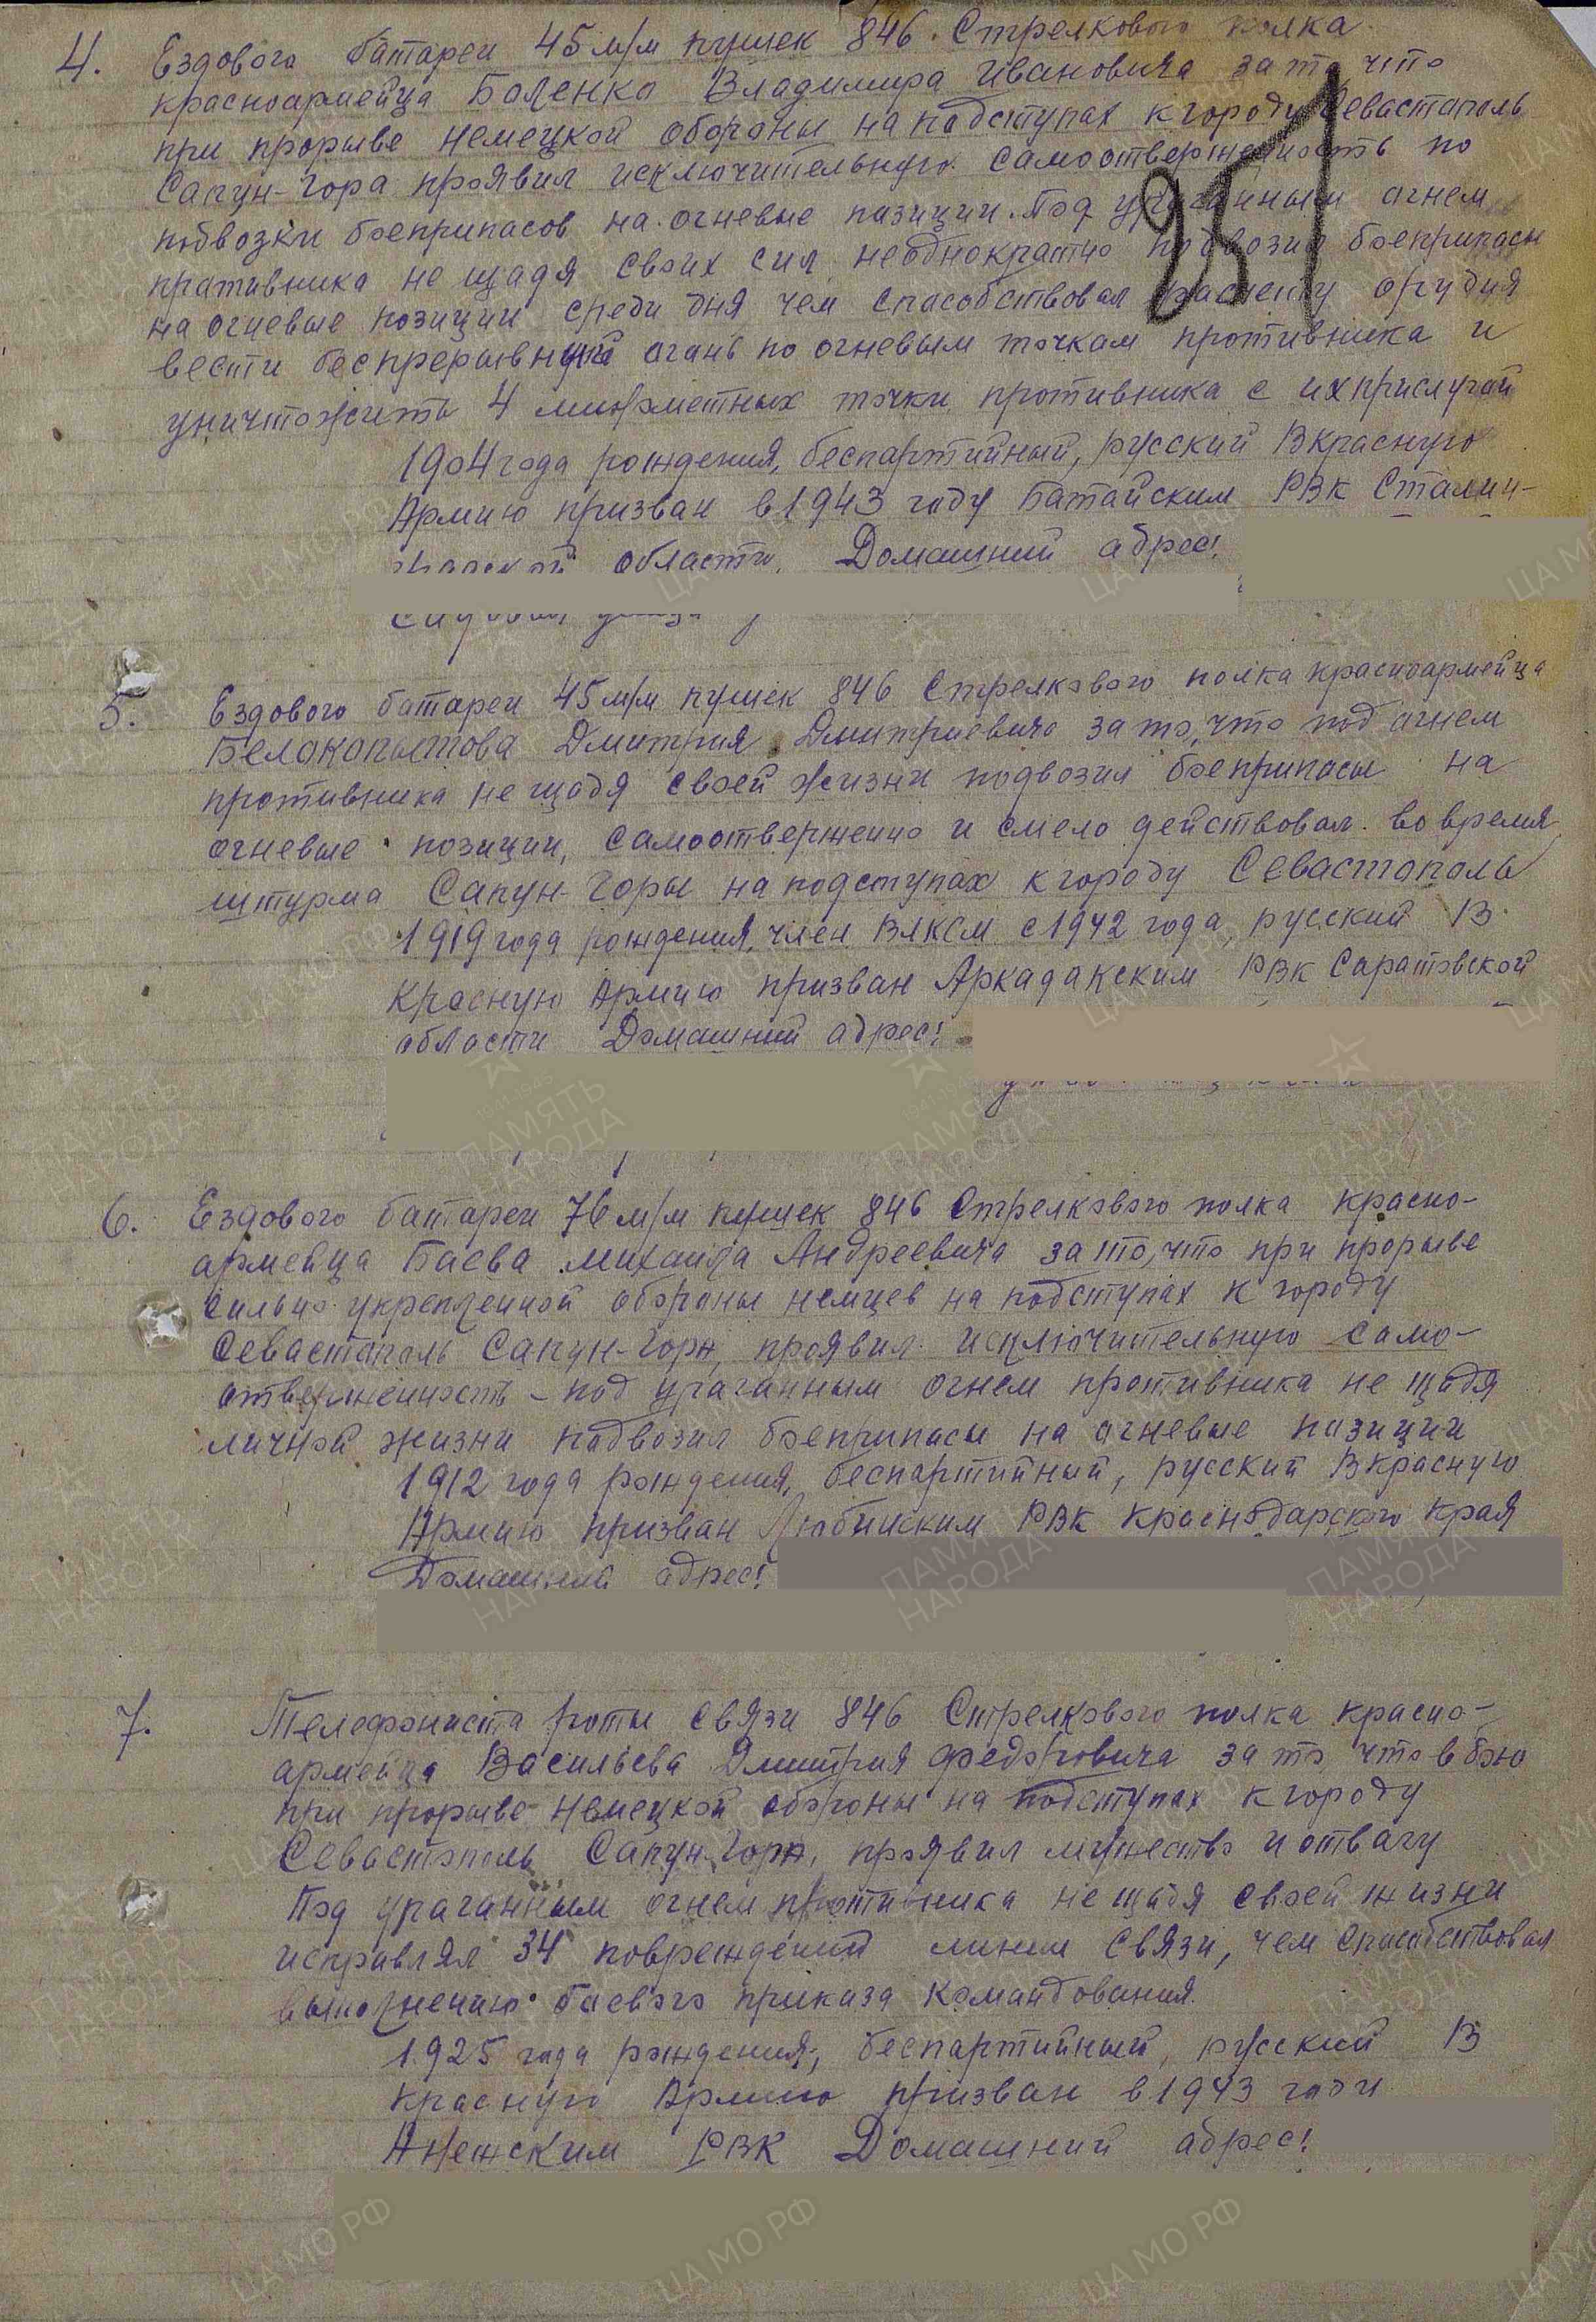 4. Ездового батареи 45 м/м пушек 846 Стрелкового полка
красноармейца Баленко Владимира Ивановича за то, что
при прорыве немецкой обороны на подступах к городу Севастополь
Сапун-Гора проявил исключительную самоотверженность по
подвозки боеприпасов на огневые позиции. Под ураганным огнем
противника не щадя своих сил неоднократно подвозил боеприпасы
на огневые позиции среди дня чем способствовал расчету орудия
вести беспрерывный огонь по огневым точкам противника и
уничтожить 4 минометных точки противника с их прислугой
1904 года рождения, беспартийный, русский В красную
Армию призван в 1943 году Батайским РВК Сталин-
области. Домашний адрес:
251
5. Ездового батареи 45 м/м пушек 846 Стрелкового полка красноармейца
Белокопытова Дмитрия Дмитриевича за то, что под огнем
противника не щадя своей жизни подвозил боеприпасы на
огневые позиции, самоотверженно и смело действовал во время
штурма Сапун-Горы на подступах к городу Севастополь
1919 года рождения, член ВЛКСМ с 1942 года, русский В
Красную Армию призван Аркадакским РВК Саратовской
области Домашний адрес:
6. Ездового батареи 76 м/м пушек 846 Стрелкового полка красно-
армейца Баева Михаила Андреевича за то, что при прорыве
сильно укрепленной обороны немцев на подступах к городу
Севастополь Сапун-Гора, проявил исключительную само-
отверженность - под ураганным огнем противника не щадя
личной жизни подвозил боеприпасы на огневые позиции
1912 года рождения, беспартийный, русский В красную
Армию призван РВК Краснодарского края
Домашний адрес:
7. Телефониста роты связи 846 Стрелкового полка красно-
армейца Васильева Дмитрия Федоровича за то что в бою
при прорыве немецкой обороны на подступах к городу
Севастополь Сапун-Гора, проявил мужество и отвагу
Под ураганным огнем противника не щадя своей жизни
исправлял 34 повреждений линии связи, чем способствовал
выполнению боевого приказа командования.
1925 года рождения, беспартийный, русский В
красную Армию призван в 1943 году
РВК Домашний адрес:
ПАМЯТЬ НАРОДА
ЦА МО РФ